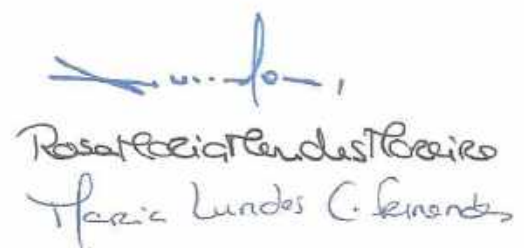 Rosa Maria Mendes Moreira
Maria Lurdes C. Fernandes